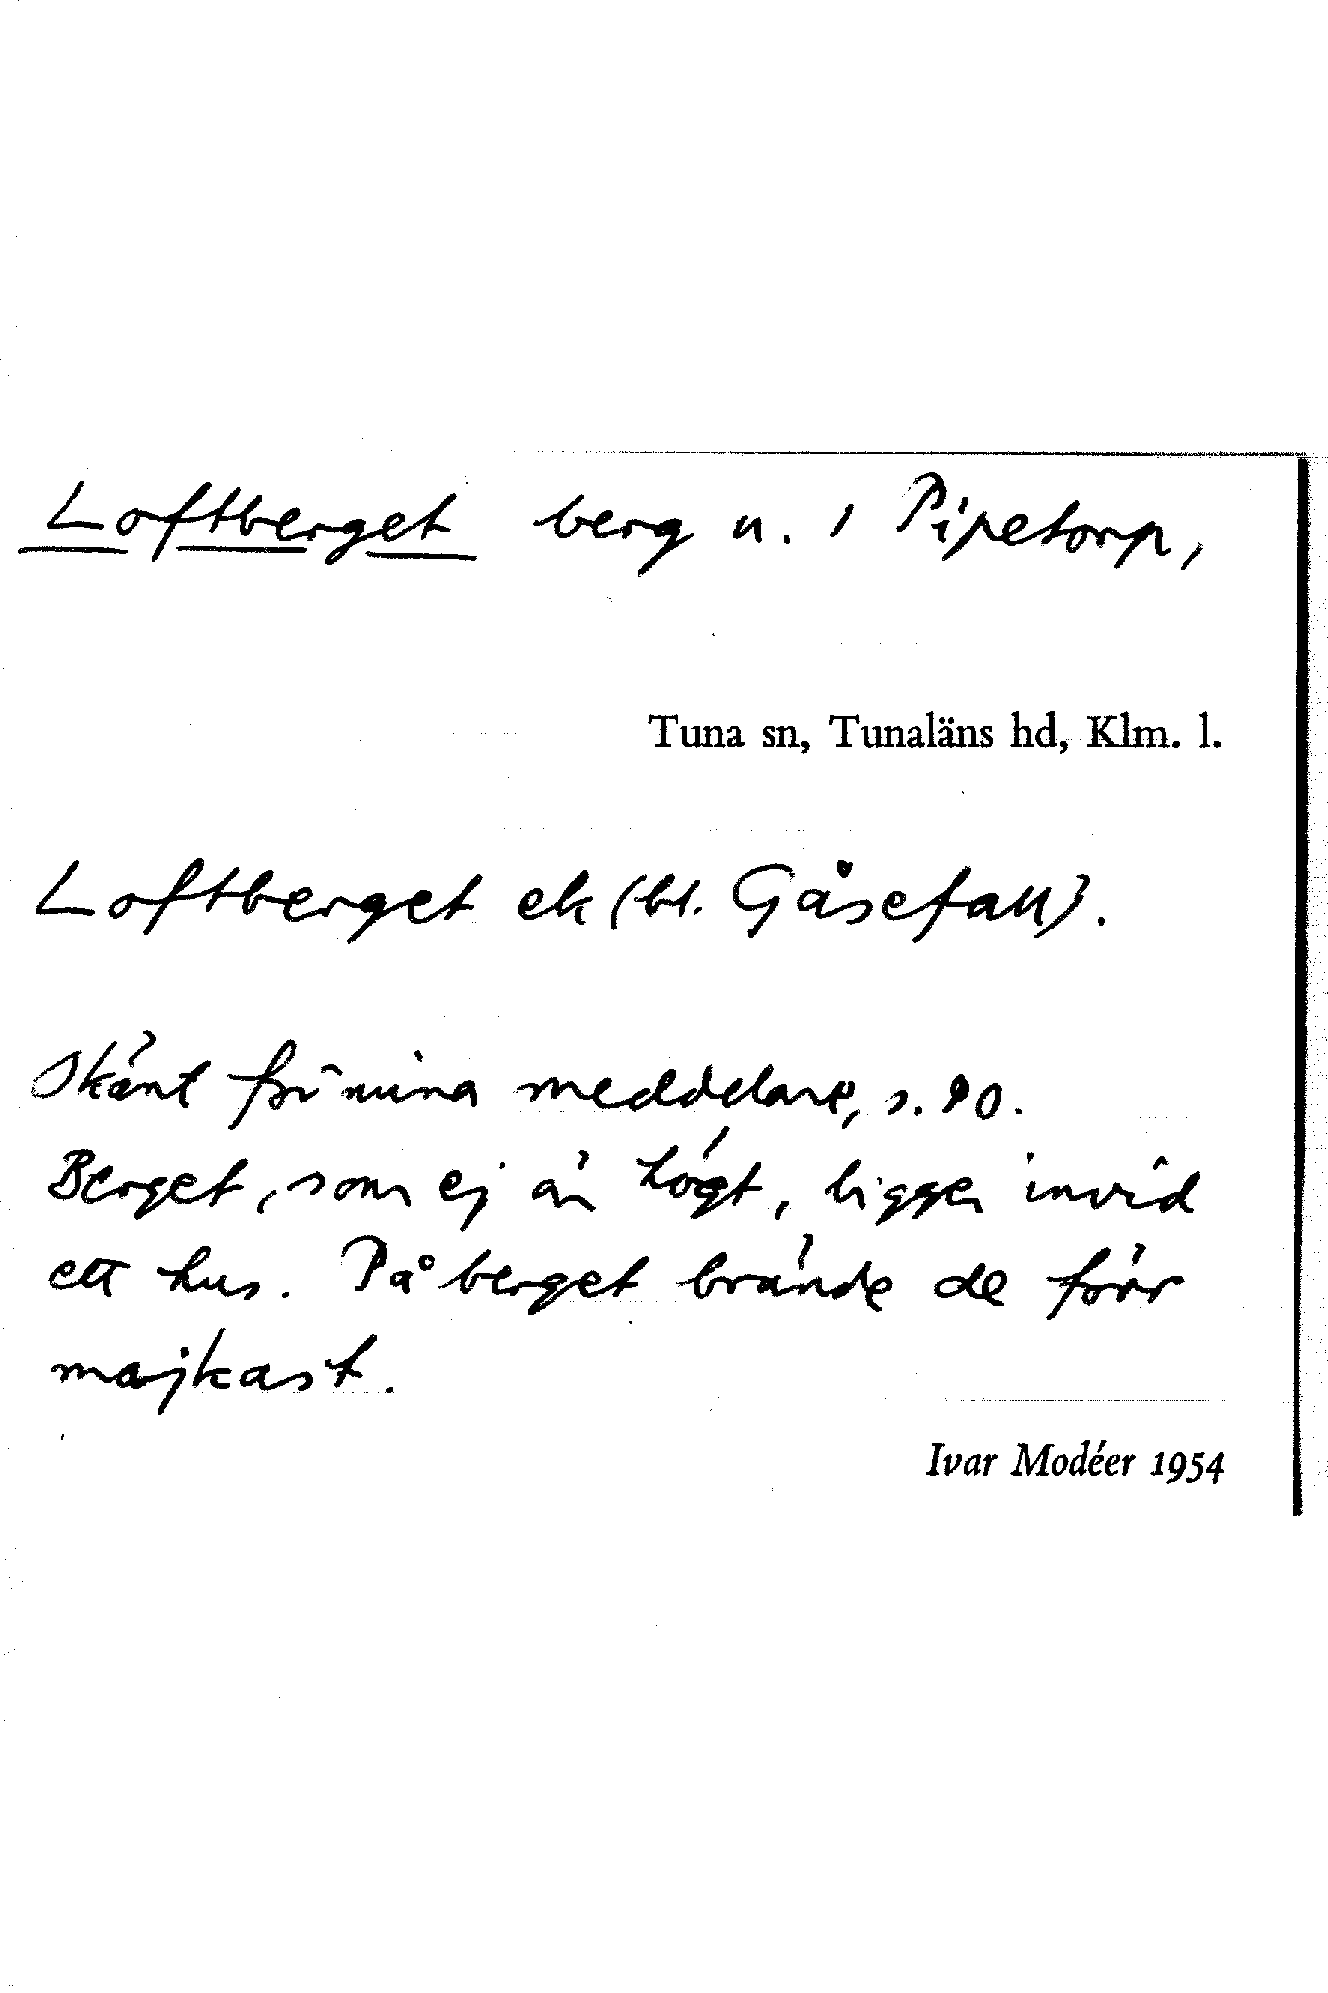 Loftberget berg n. / Pipetorp,
Tuna sn, Tunaläns hd, Klm. l.
Loftberget ek (bl. Gåsefall).
Okänt för mina meddelare, s. 90.
Berget, som ej är högt, ligger invid
ett hus. På berget brände de förr
majkast.
Ivar Modéer 1954